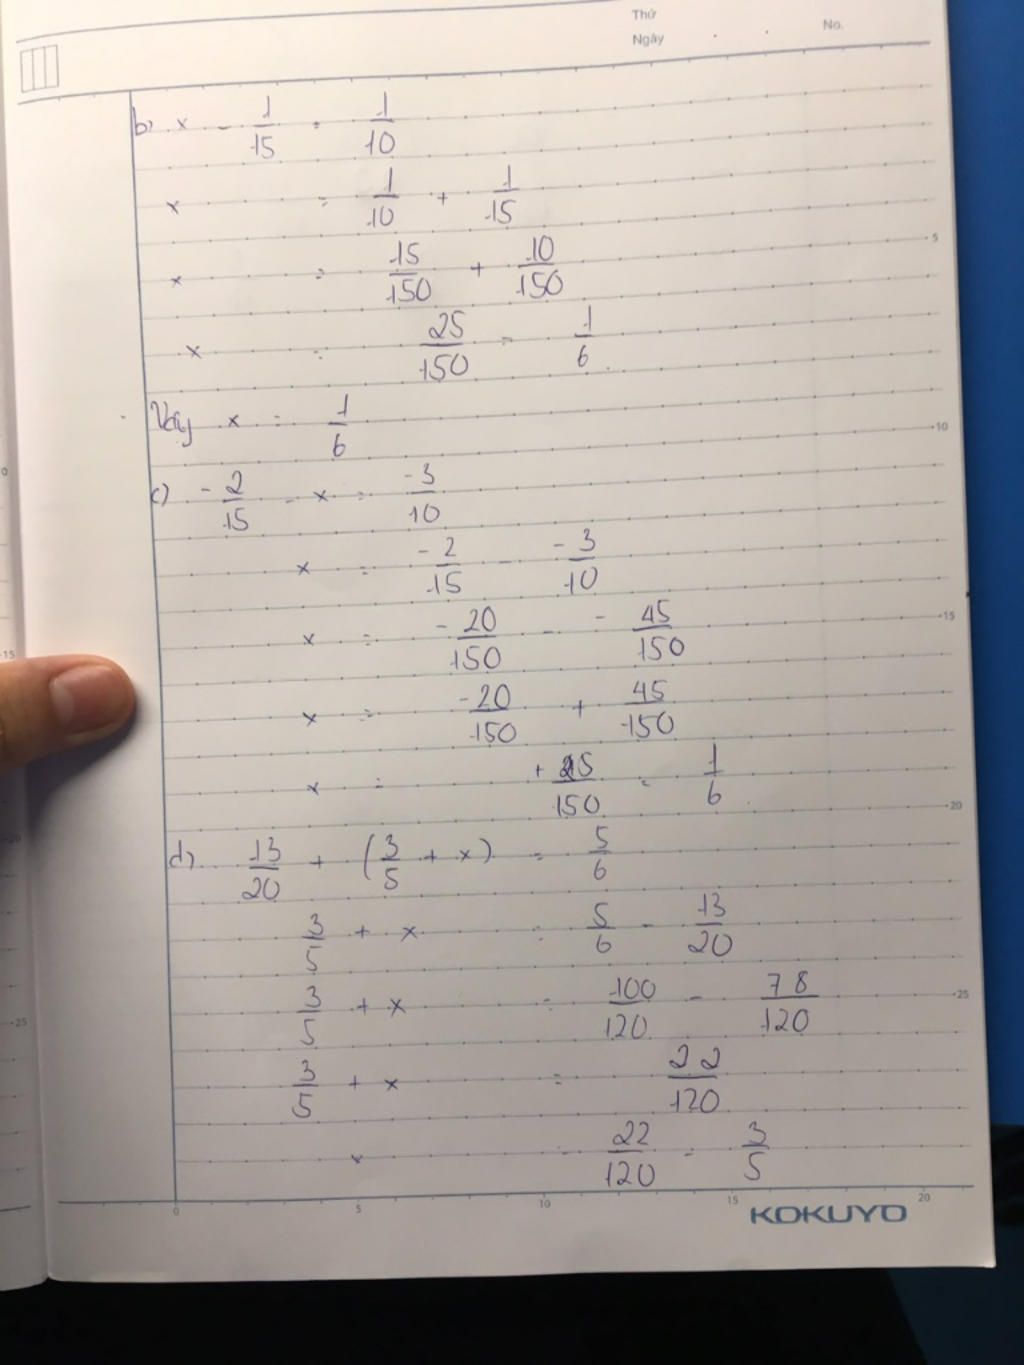 Thứ
Ngày . . No.
b) x - 1/15 = 1/10
x = 1/10 + 1/15
x = 15/150 + 10/150
x = 25/150 = 1/6
Vậy x = 1/6
c) -2/15 - x = -3/10
x = -2/15 - -3/10
x = -20/150 - -45/150
x = -20/150 + 45/150
x = +25/150 = 1/6
d) 13/20 + (3/5 + x) = 5/6
3/5 + x = 5/6 - 13/20
3/5 + x = 100/120 - 78/120
3/5 + x = 22/120
x = 22/120 - 3/5
5
10
15
20
25
0 5 10 15 20
KOKUYO